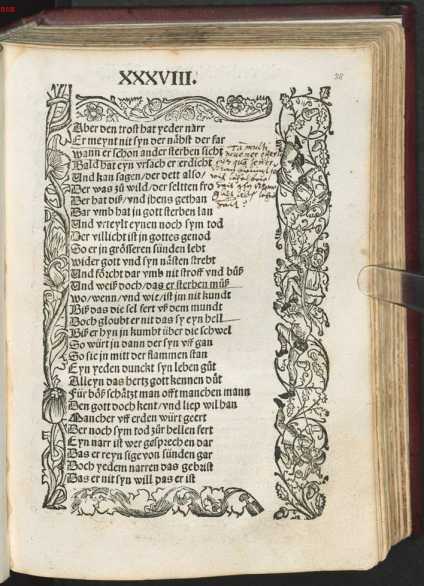 XXXVIII.
38
Aber den trost hat yeder narr
Er meynt nit syn der nåhst der far
wann er schon ander sterben sicht
Bald hat eyn vrsach er erdicht
Und kan sagen / der dett also /
Der was zů wild / der seltten fro
Der hat diß / vnd jhens gethan
Dar vmb hat jn gott sterben lan
Und vrteylt eynen noch sym tod
Der villicht ist jn gottes genod
So er jn grösseren sünden lebt
wider gott vnd syn nåsten strebt
Und förcht dar vmb nit stroff vnd bůß
Und weiß doch / das er sterben můß
wo / wenn / vnd wie / ist jm nit kundt
Biß das die sel fert vß dem mundt
Doch gloubt er nit das sy eyn hell
Biß er hyn jn kumbt über die schwel
So würt jn dann der syn vff gan
So sie jn mitt der flammen stan
Eyn yeden dunckt syn leben gůt
Alleyn das hertz gott kennen důt
Für böß schåtzt man offt manchen mann
Den gott doch kent / vnd liep wil han
Mancher vff erden würt geert
Der noch sym tod zůr hellen fert
Eyn narr ist wer gesprechen dar
Das er reyn sig von sünden gar
Doch yedem narren das gebrist
Das er nit syn will das er ist